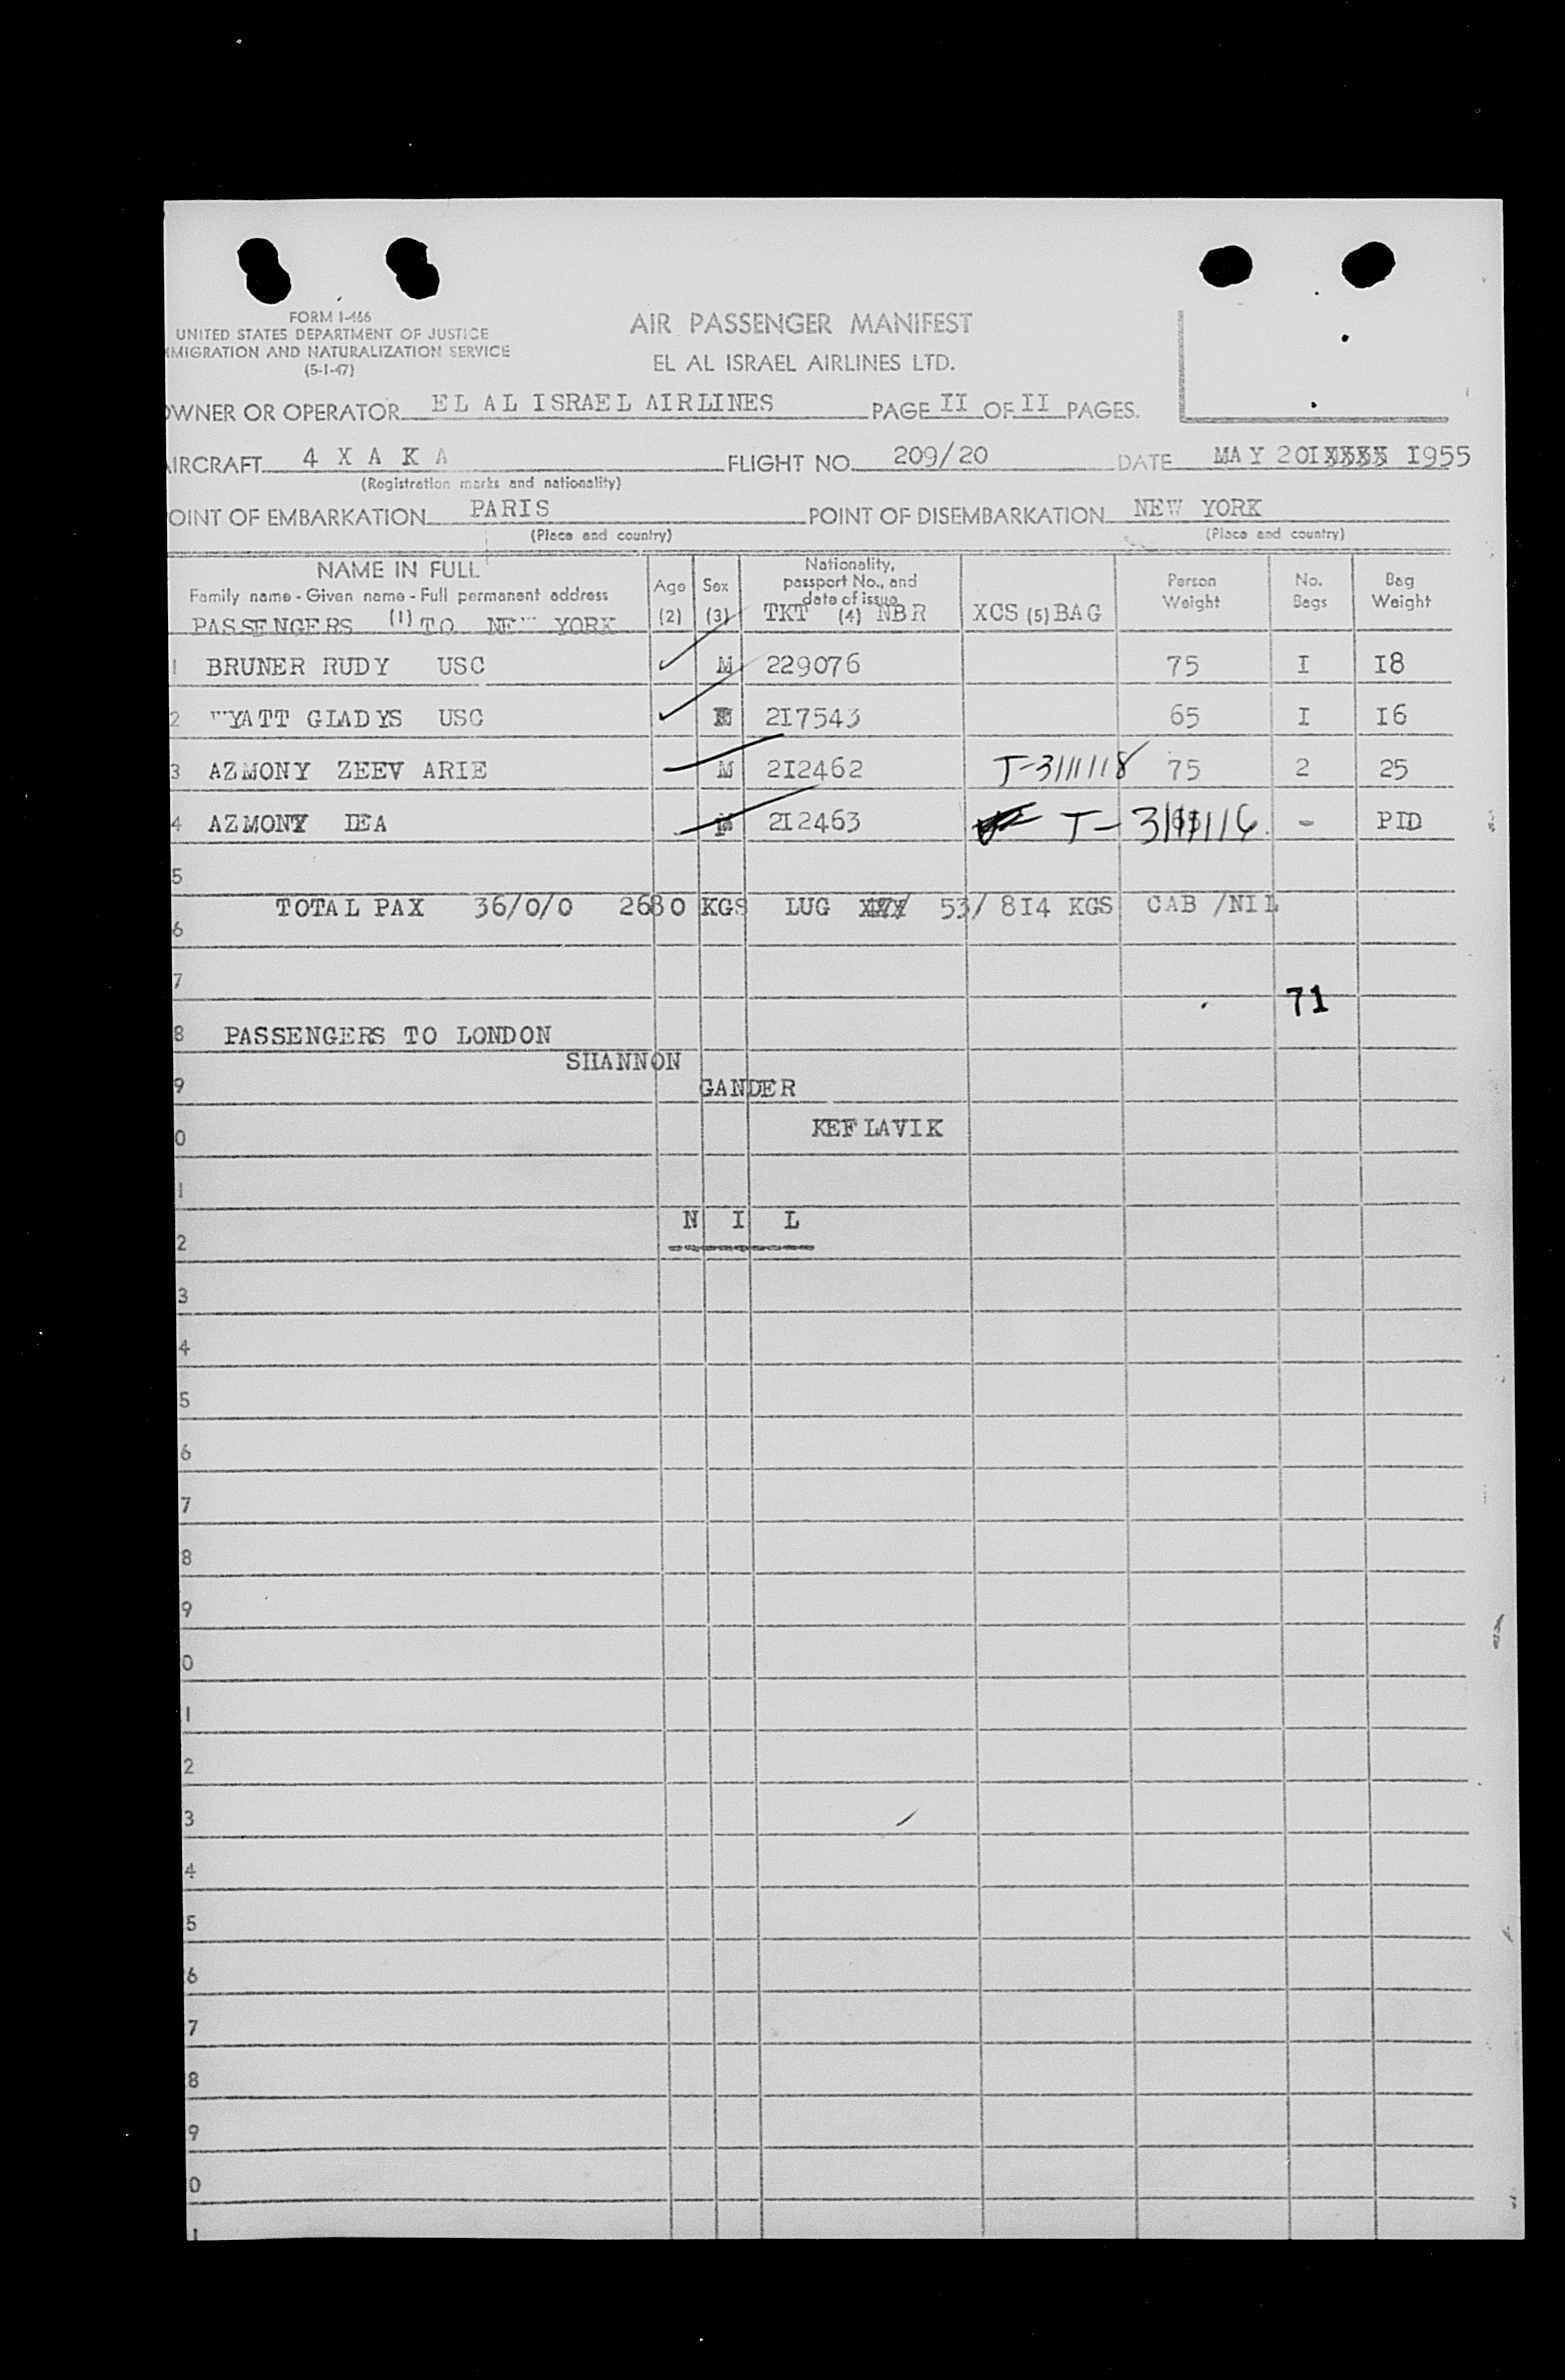 FORM I-466
UNITED STATES DEPARTMENT OF JUSTICE
MMIGRATION AND NATURALIZATION SERVICE
(5-1-47)
AIR PASSENGER MANIFEST
EL AL ISRAEL AIRLINES LTD.
OWNER OR OPERATOR EL AL ISRAEL AIRLINES PAGE II OF II PAGES.
AIRCRAFT 4 X A K A FLIGHT NO. 209/20 DATE MAY 20 1955
(Registration marks and nationality)
OINT OF EMBARKATION PARIS POINT OF DISEMBARKATION NEW YORK
(Place and country) (Place and country)
NAME IN FULL
Family name - Given name - Full permanent address
(1)
PASSENGERS TO NEW YORK
Age (2)
Sex (3)
Nationality, passport No., and date of issue
TKT (4) NBR
XCS (5) BAG
Person Weight
No. Bags
Bag Weight
1 BRUNER RUDY USC M 229076 75 I I8
2 WYATT GLADYS USC 2I7543 65 I I6
3 AZMONY ZEEV ARIE M 2I2462 T-3111118 75 2 25
4 AZMONY LEA 2I2463 T- PID
5
TOTAL PAX 36/0/0 2680 KGS LUG 53/ 8I4 KGS CAB /NIL
6
7
71
8 PASSENGERS TO LONDON
SHANNON
9 GANDER
0 KEFLAVIK
1
N I L
2
3
4
5
6
7
8
9
0
1
2
3
4
5
6
7
8
9
0
1